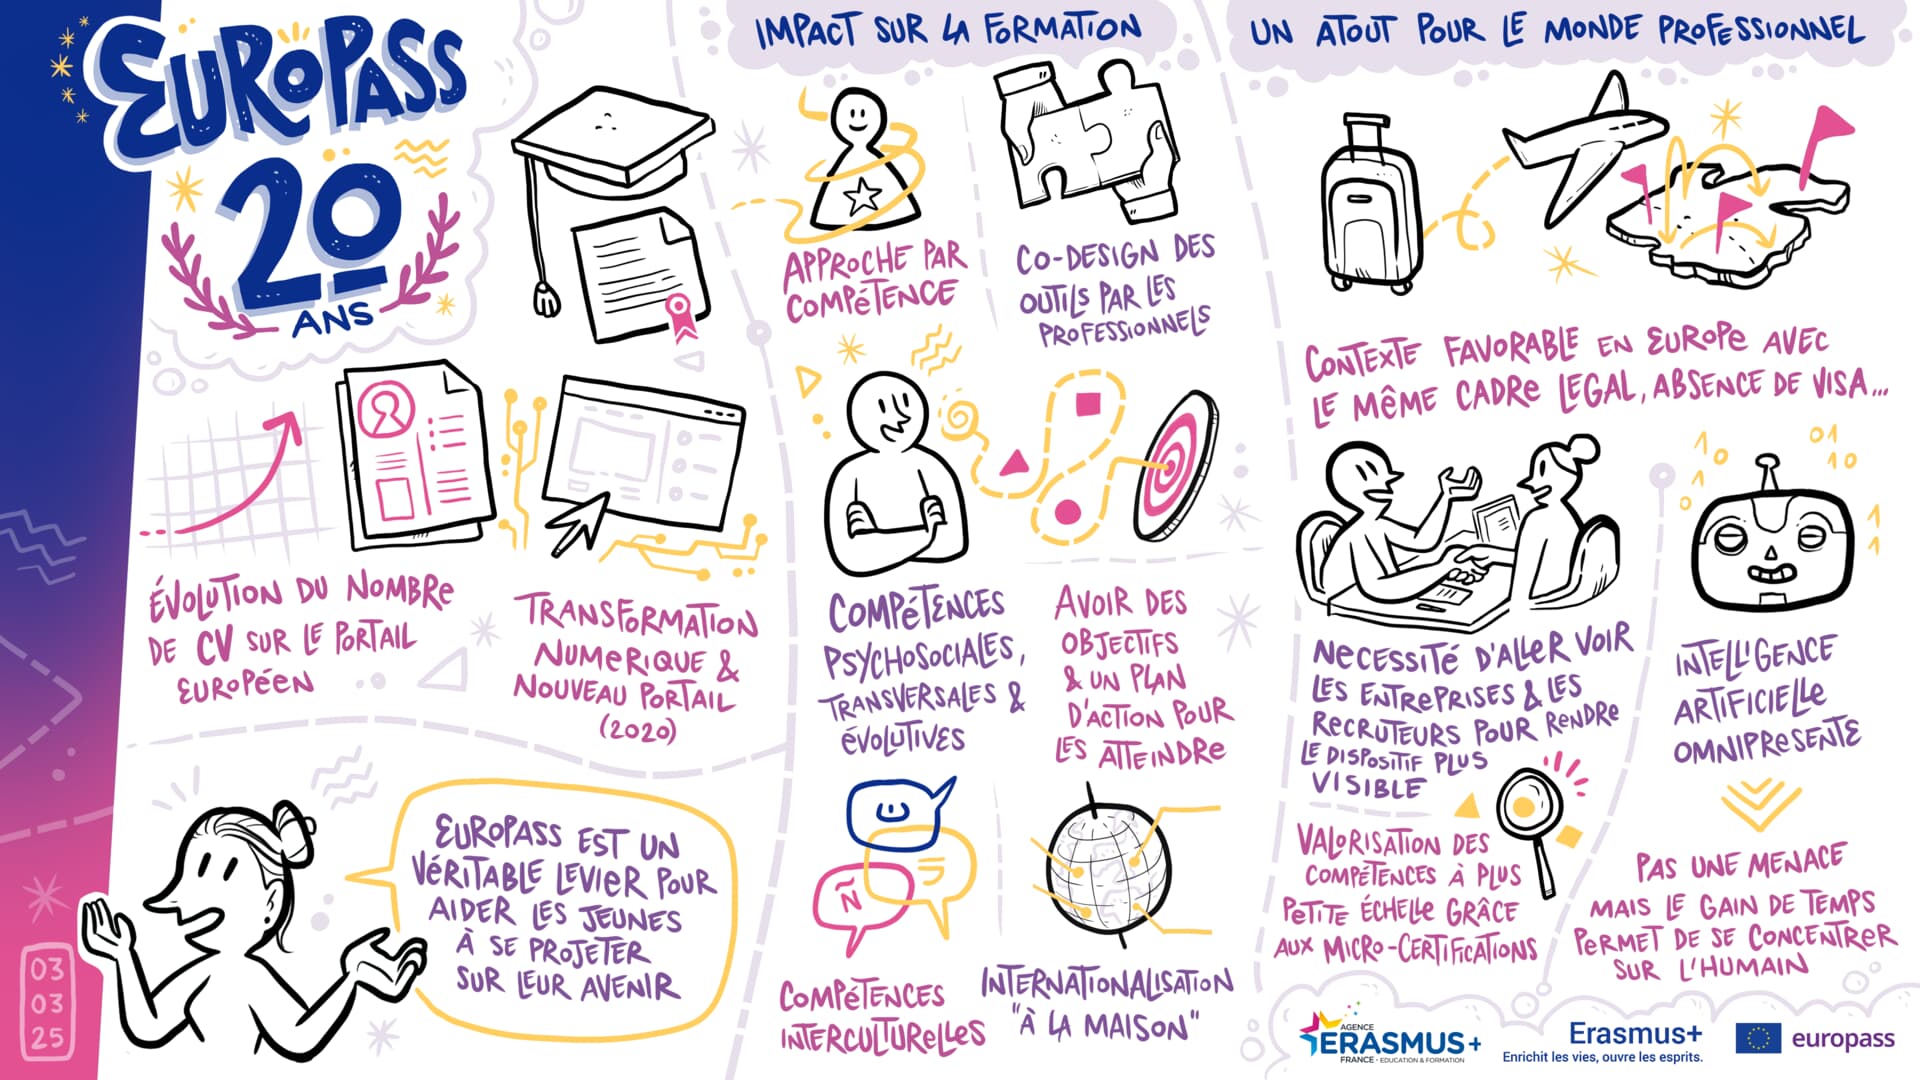 EUROPASS
20
ANS
ÉVOLUTION DU NOMBRE
DE CV SUR LE PORTAIL
EUROPÉEN
TRANSFORMATION
NUMERIQUE &
NOUVEAU PORTAIL
(2020)
EUROPASS EST UN
VÉRITABLE LEVIER POUR
AIDER LES JEUNES
À SE PROJETER
SUR LEUR AVENIR
03
03
25
IMPACT SUR LA FORMATION
APPROCHE PAR
COMPÉTENCE
CO-DESIGN DES
OUTILS PAR LES
PROFESSIONNELS
COMPÉTENCES
PSYCHOSOCIALES,
TRANSVERSALES &
ÉVOLUTIVES
AVOIR DES
OBJECTIFS
& UN PLAN
D'ACTION POUR
LES ATTEINDRE
Ñ
COMPÉTENCES
INTERCULTURELLES
INTERNATIONALISATION
"À LA MAISON"
UN ATOUT POUR LE MONDE PROFESSIONNEL
CONTEXTE FAVORABLE EN EUROPE AVEC
LE MÊME CADRE LEGAL, ABSENCE DE VISA...
NECESSITÉ D'ALLER VOIR
LES ENTREPRISES & LES
RECRUTEURS POUR RENDRE
LE DISPOSITIF PLUS
VISIBLE
VALORISATION DES
COMPÉTENCES À PLUS
PETITE ÉCHELLE GRÂCE
AUX MICRO-CERTIFICATIONS
1 0 01
1 0
0 1
1
INTELLIGENCE
ARTIFICIELLE
OMNIPRESENTE
PAS UNE MENACE
MAIS LE GAIN DE TEMPS
PERMET DE SE CONCENTRER
SUR L'HUMAIN
AGENCE
ERASMUS+
FRANCE • EDUCATION & FORMATION
Erasmus+
Enrichit les vies, ouvre les esprits.
europass